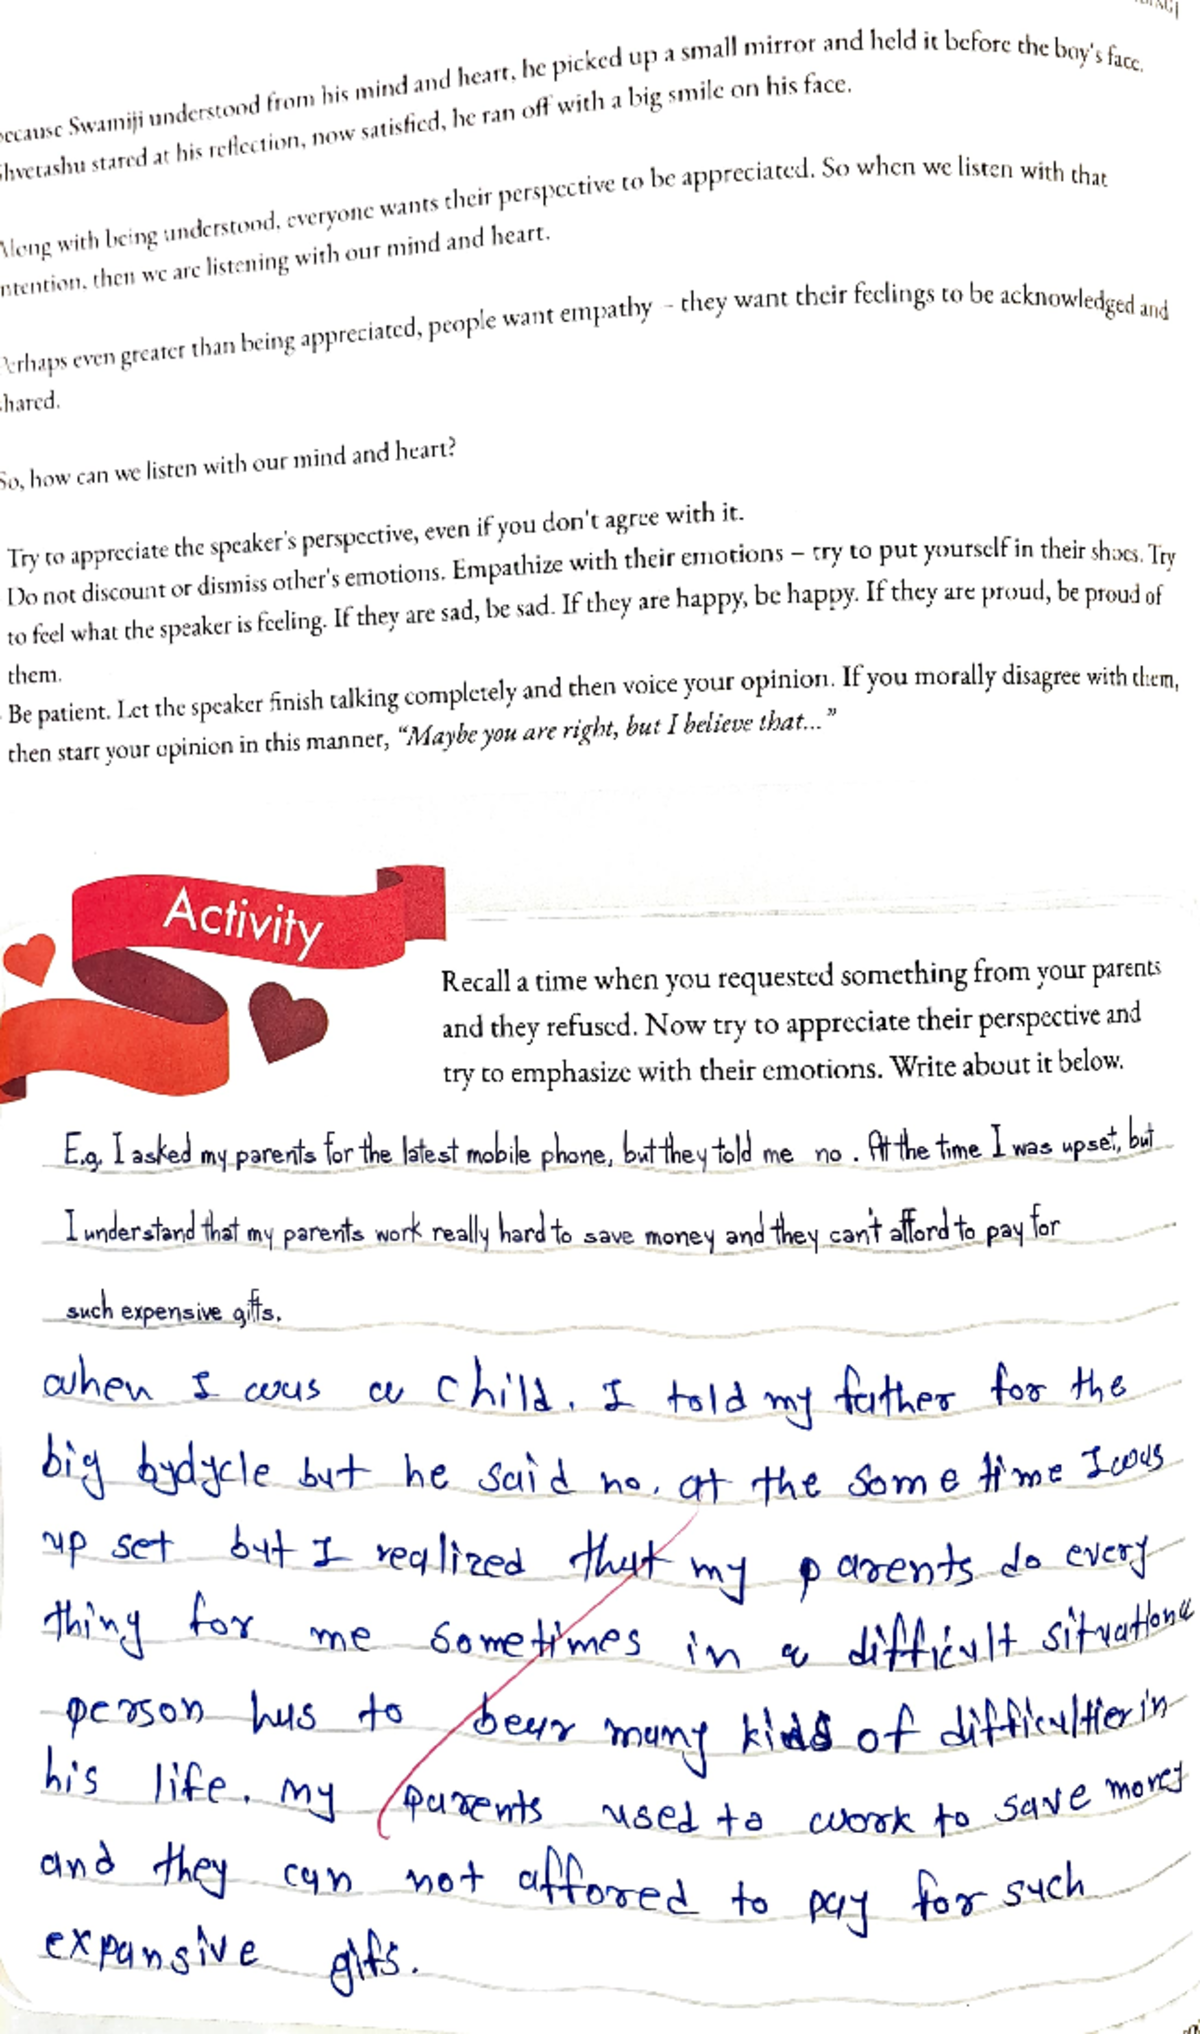 because Swamiji understood from his mind and heart, he picked up a small mirror and held it before the boy's face.
Shvetashu stared at his reflection, now satisfied, he ran off with a big smile on his face.
Along with being understood, everyone wants their perspective to be appreciated. So when we listen with that
ntention, then we are listening with our mind and heart.
Perhaps even greater than being appreciated, people want empathy – they want their feelings to be acknowledged and
shared.
So, how can we listen with our mind and heart?
Try to appreciate the speaker's perspective, even if you don't agree with it.
Do not discount or dismiss other's emotions. Empathize with their emotions – try to put yourself in their shoes. Try
to feel what the speaker is feeling. If they are sad, be sad. If they are happy, be happy. If they are proud, be proud of
them.
Be patient. Let the speaker finish talking completely and then voice your opinion. If you morally disagree with them,
then start your opinion in this manner, "Maybe you are right, but I believe that..."
Activity
Recall a time when you requested something from your parents
and they refused. Now try to appreciate their perspective and
try to emphasize with their emotions. Write about it below.
E.g. I asked my parents for the latest mobile phone, but they told me no. At the time I was upset, but
I understand that my parents work really hard to save money and they can't afford to pay for
such expensive gifts.
when I was a child. I told my father for the
big bydycle but he said no. at the some time I was
up set but I realized that my parents do every
thing for me sometimes in a difficult situation a
person has to bear many kids of difficultier in
his life. my parents used to work to save money
and they can not affored to pay for such
expansive gifs.